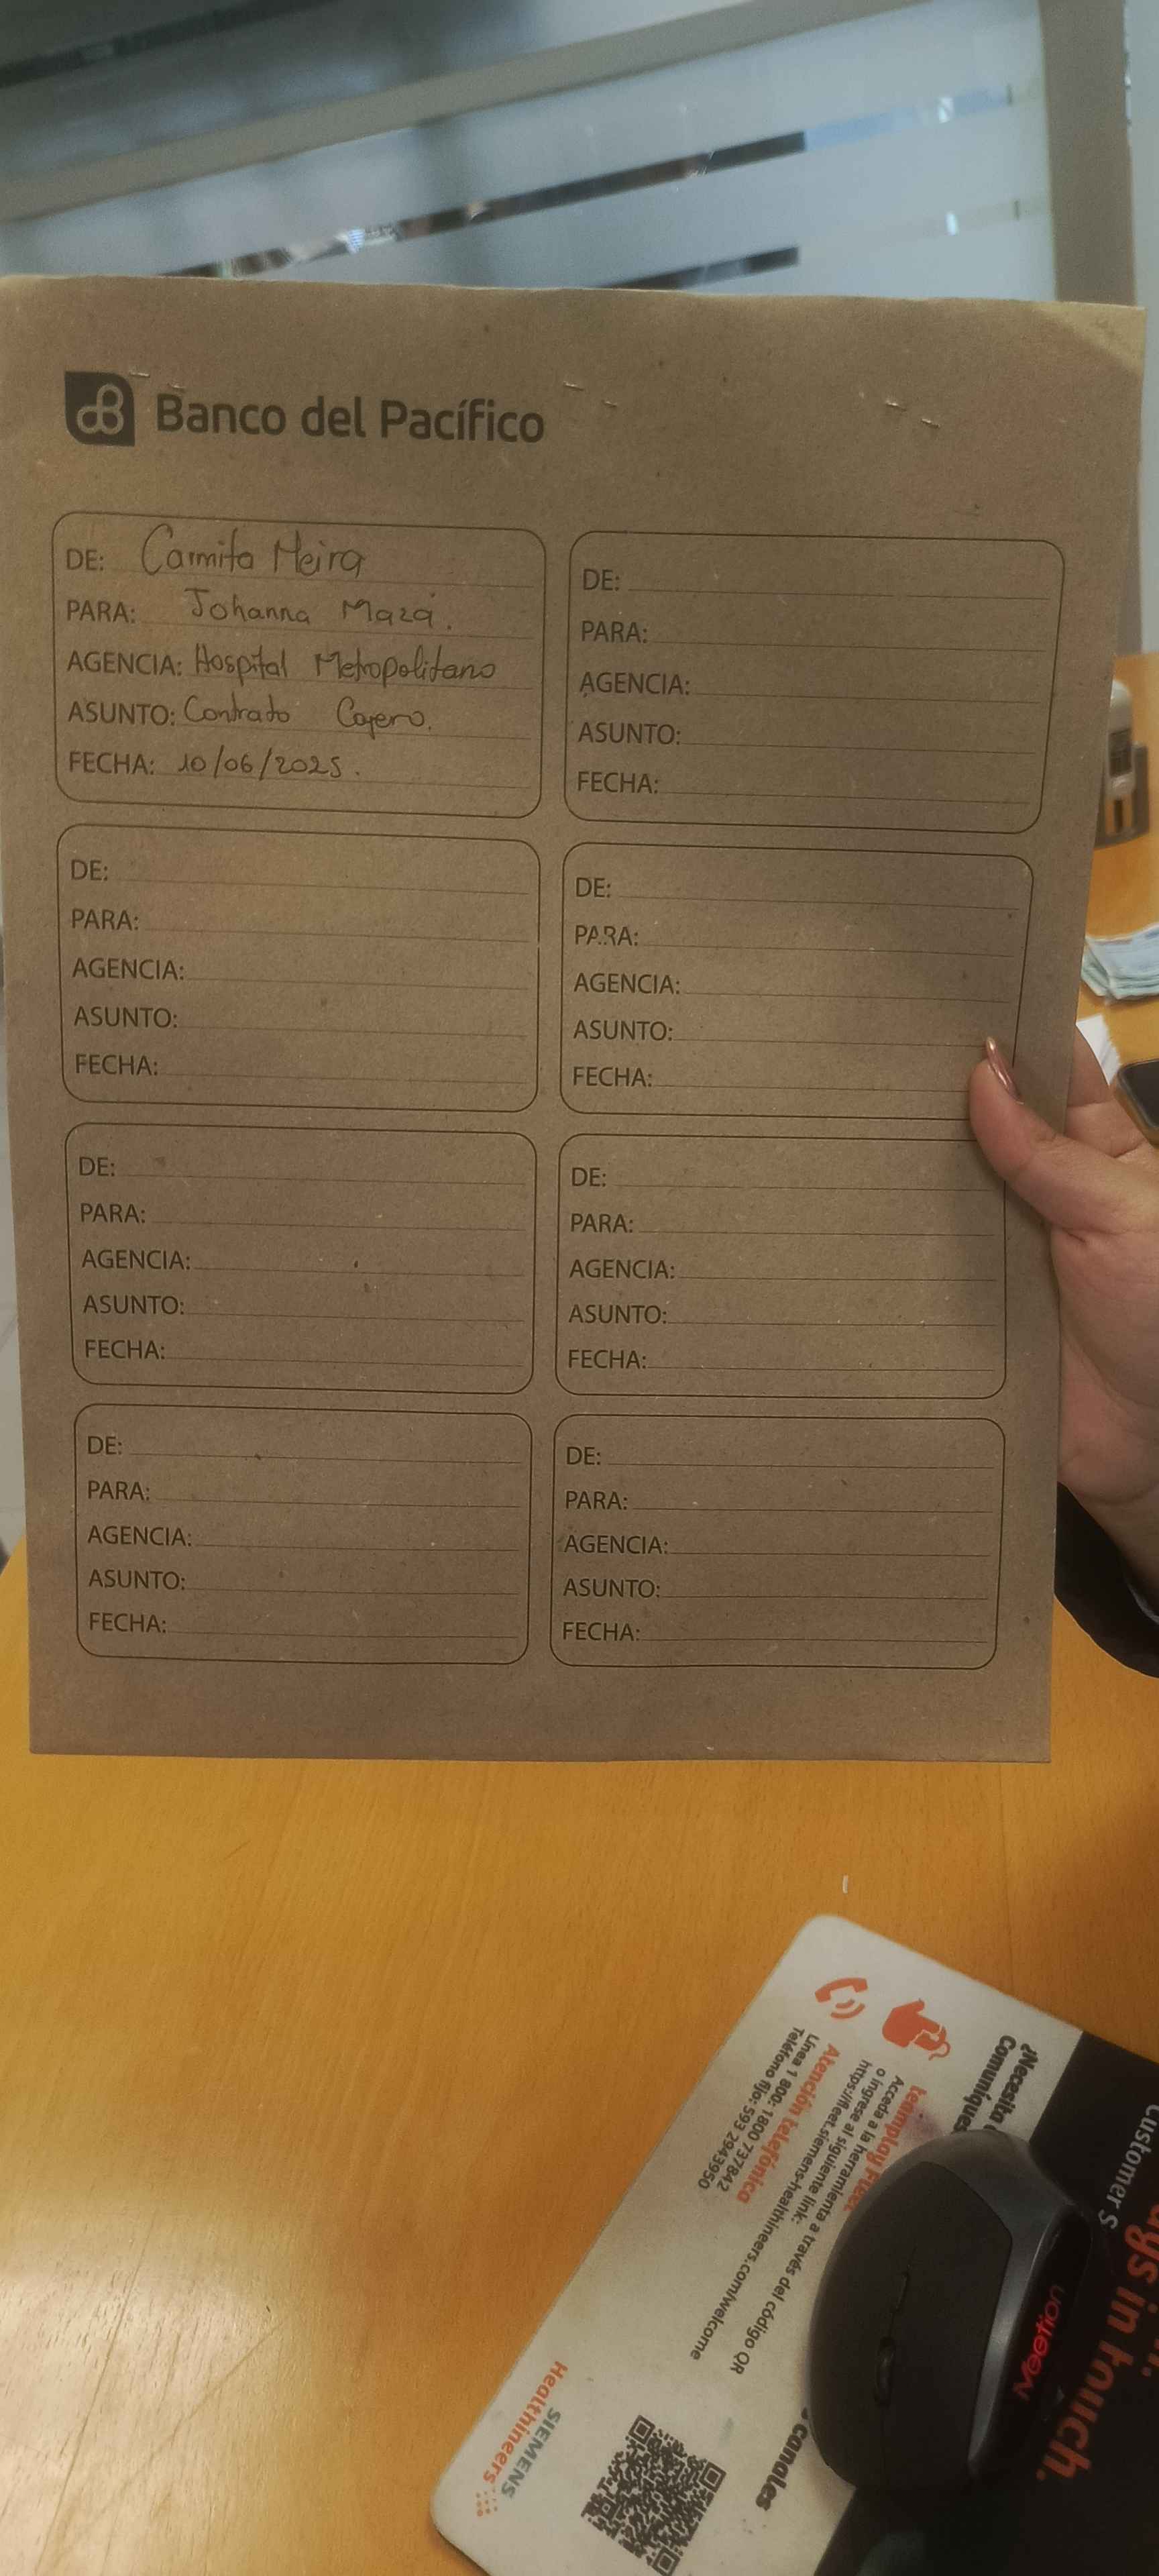 Banco del Pacífico
DE: Carmita Neira
PARA: Johanna Maza.
AGENCIA: Hospital Metropolitano
ASUNTO: Contrato Cajero.
FECHA: 10/06/2025.
DE:
PARA:
AGENCIA:
ASUNTO:
FECHA:
DE:
PARA:
AGENCIA:
ASUNTO:
FECHA:
DE:
PARA:
AGENCIA:
ASUNTO:
FECHA:
DE:
PARA:
AGENCIA:
ASUNTO:
FECHA:
DE:
PARA:
AGENCIA:
ASUNTO:
FECHA:
DE:
PARA:
AGENCIA:
ASUNTO:
FECHA:
DE:
PARA:
AGENCIA:
ASUNTO:
FECHA:
Customer S
in touch.
¿Necesita
canales
teamplay Fleet
Acceda a la herramienta a través del código QR
o ingrese al siguiente link:
https://fleet.siemens-healthineers.com/welcome
Atención telefónica
Línea 1 800: 1800 737842
Teléfono fijo: 593 2943950
SIEMENS
Healthineers
Meetion